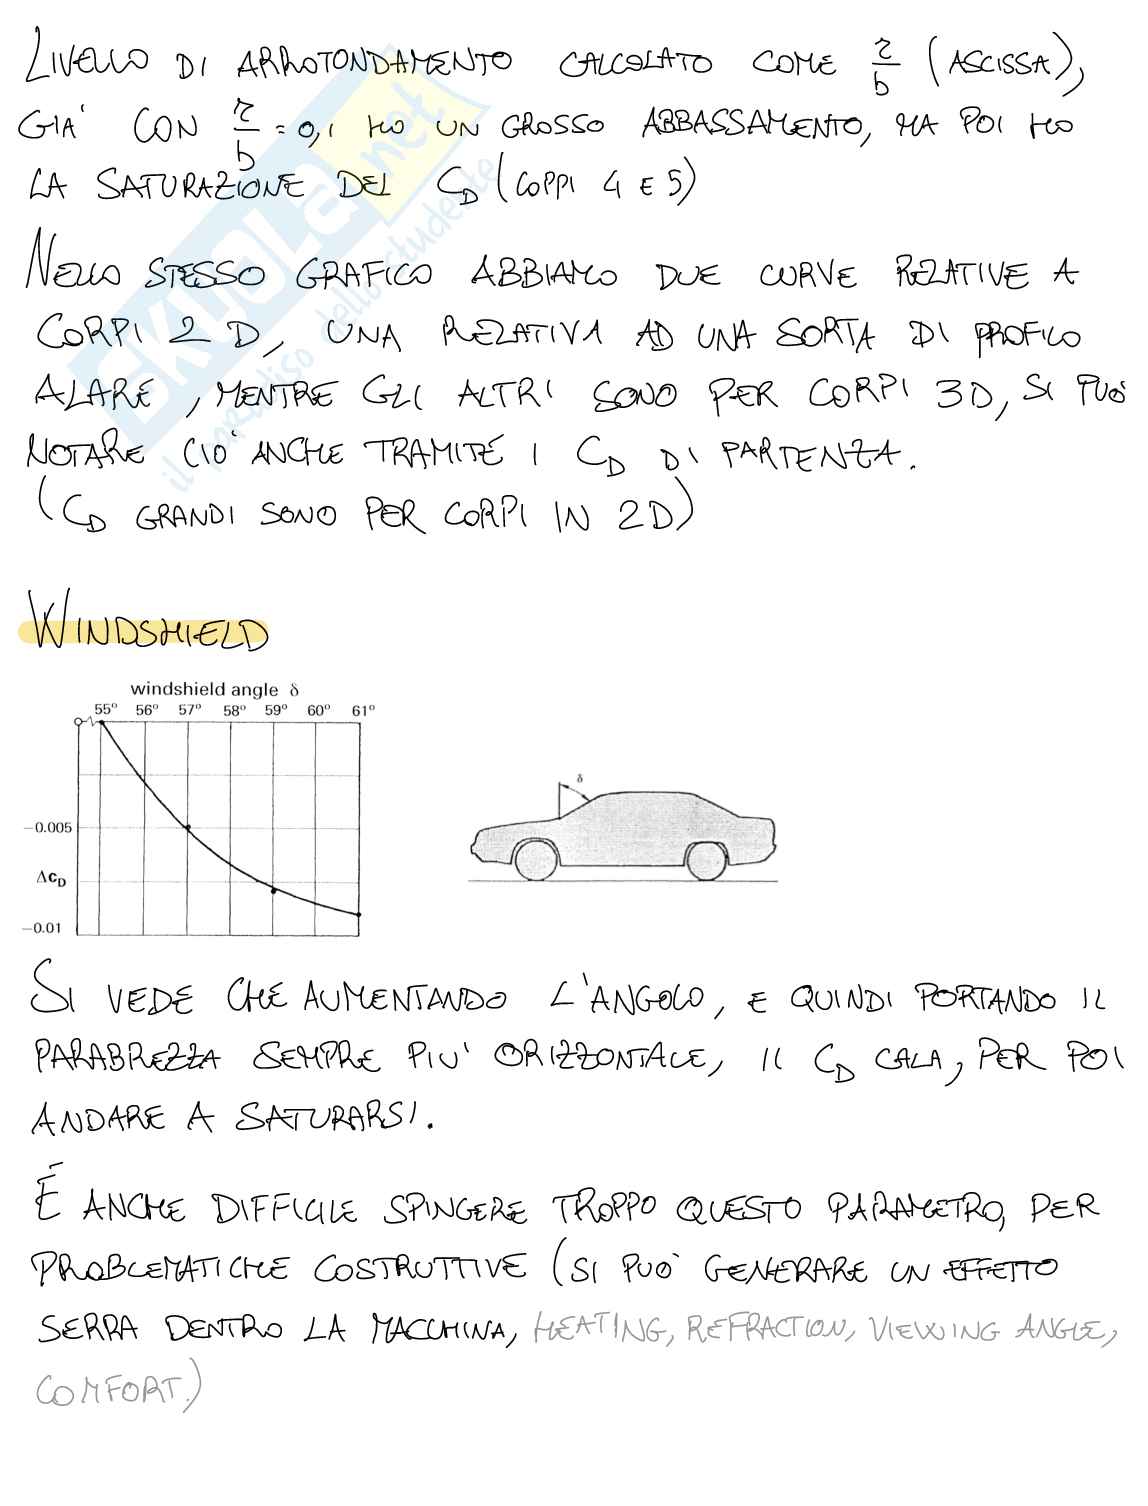 LIVELLO DI ARROTONDAMENTO CALCOLATO COME r/b (ASCISSA),
GIA' CON r/b = 0,1 HO UN GROSSO ABBASSAMENTO, MA POI HO
LA SATURAZIONE DEL CD (COPPI 4 E 5)
NELLO STESSO GRAFICO ABBIAMO DUE CURVE RELATIVE A
CORPI 2D, UNA RELATIVA AD UNA SORTA DI PROFILO
ALARE, MENTRE GLI ALTRI SONO PER CORPI 3D, SI PUÒ
NOTARE CIÒ ANCHE TRAMITE I CD DI PARTENZA.
(CD GRANDI SONO PER CORPI IN 2D)
SKUOLA.net
il paradiso dello studente
WINDSHIELD
windshield angle δ
55° 56° 57° 58° 59° 60° 61°
-0.005
ΔcD
-0.01
δ
SI VEDE CHE AUMENTANDO L'ANGOLO, E QUINDI PORTANDO IL
PARABREZZA SEMPRE PIU' ORIZZONTALE, IL CD CALA, PER POI
ANDARE A SATURARSI.
É ANCHE DIFFICILE SPINGERE TROPPO QUESTO PARAMETRO, PER
PROBLEMATICHE COSTRUTTIVE (SI PUÒ GENERARE UN EFFETTO
SERRA DENTRO LA MACCHINA, HEATING, REFRACTION, VIEWING ANGLE,
COMFORT.)